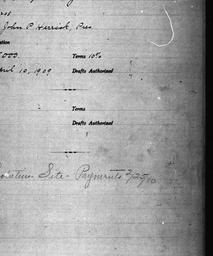 John P. Herrick, Pres
ation
000. Terms 10%
April 10, 1909 Drafts Authorized
Terms
Drafts Authorized
Site - Payments 2/25/10